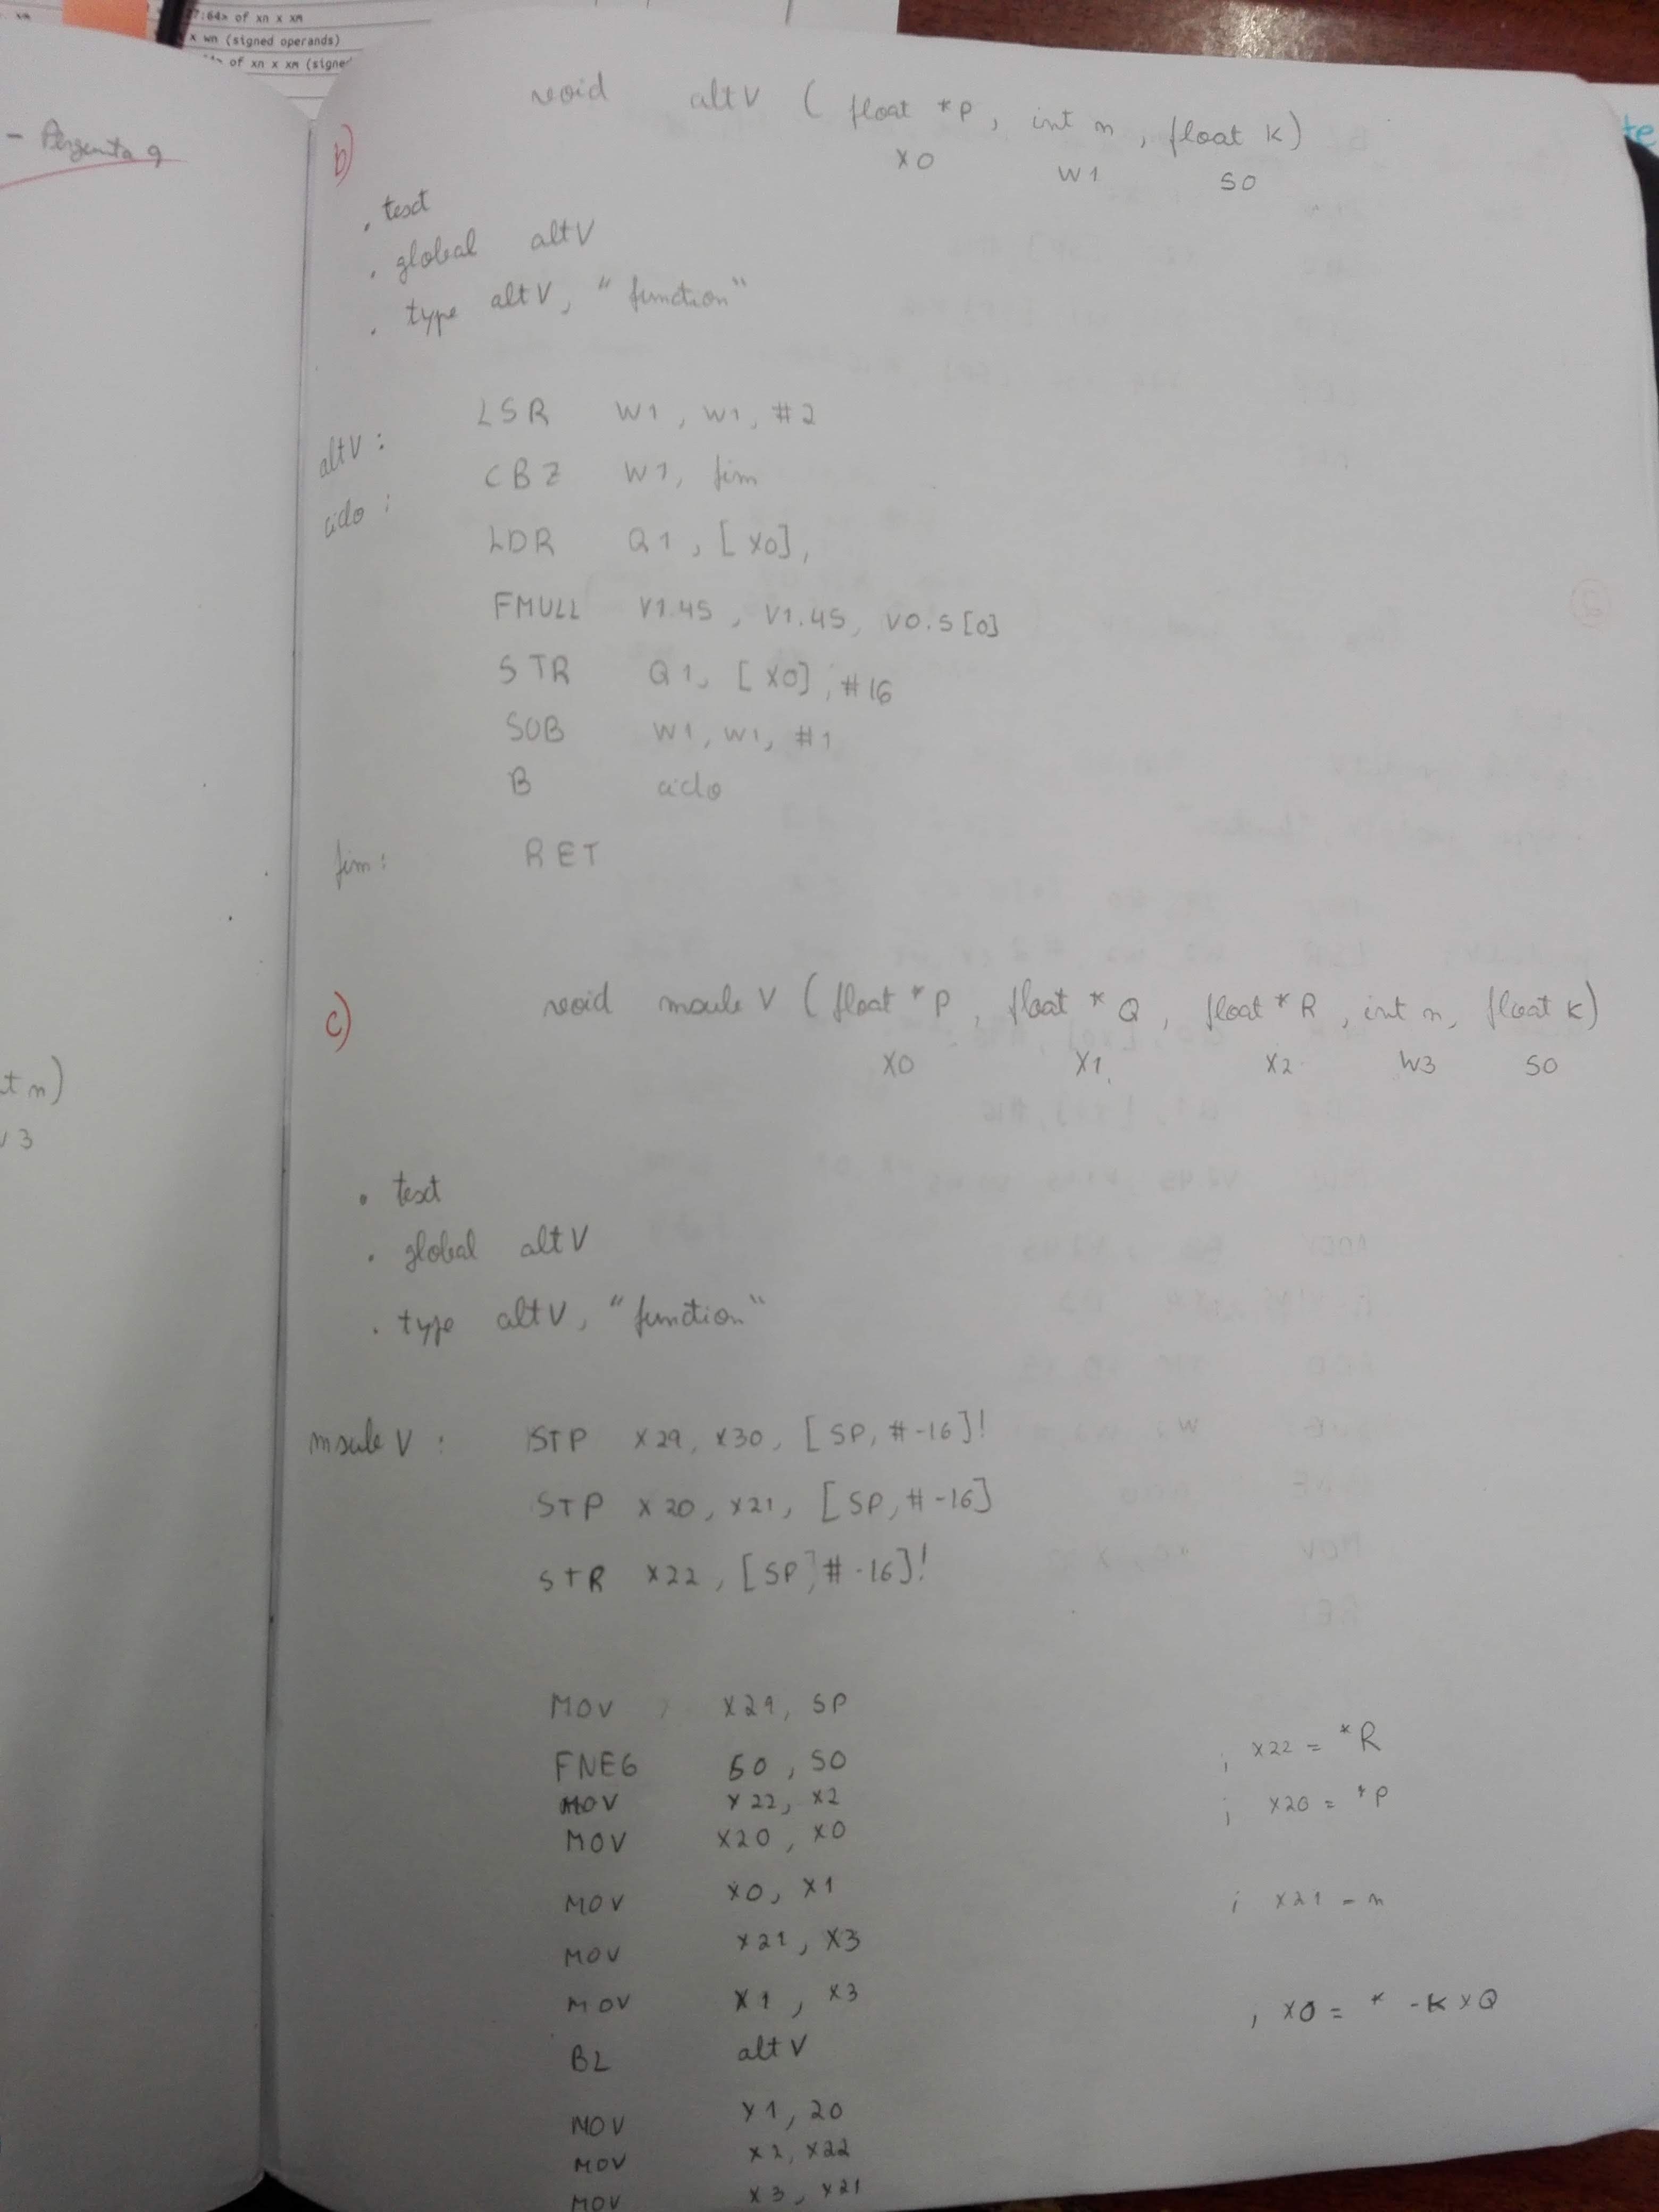 7:64> of xn x xm
x wn (signed operands)
of xn x xm (signe
te
- Pergunta 9
t n)
3
b)
void altV ( float *P, int n, float K)
X0 W1 S0
.text
.global altV
.type altV, "function"
altV: LSR W1, W1, #2
ciclo: CBZ W1, fim
LDR Q1, [X0],
FMULL V1.4S, V1.4S, V0.S[0]
STR Q1, [X0], #16
SUB W1, W1, #1
B ciclo
fim: RET
c)
void msuleV (float *P, float *Q, float *R, int n, float K)
X0 X1 X2 W3 S0
.text
.global altV
.type altV, "function"
msuleV: STP X29, X30, [SP, #-16]!
STP X20, X21, [SP, #-16]
STR X22, [SP, #-16]!
MOV X29, SP
FNEG S0, S0
MOV X22, X2 ; X22 = *R
MOV X20, X0 ; X20 = *P
MOV X0, X1
MOV X21, X3 ; X21 = n
MOV X1, X3
BL altV ; X0 = * -K x Q
MOV X1, 20
MOV X2, X22
MOV X3, X21